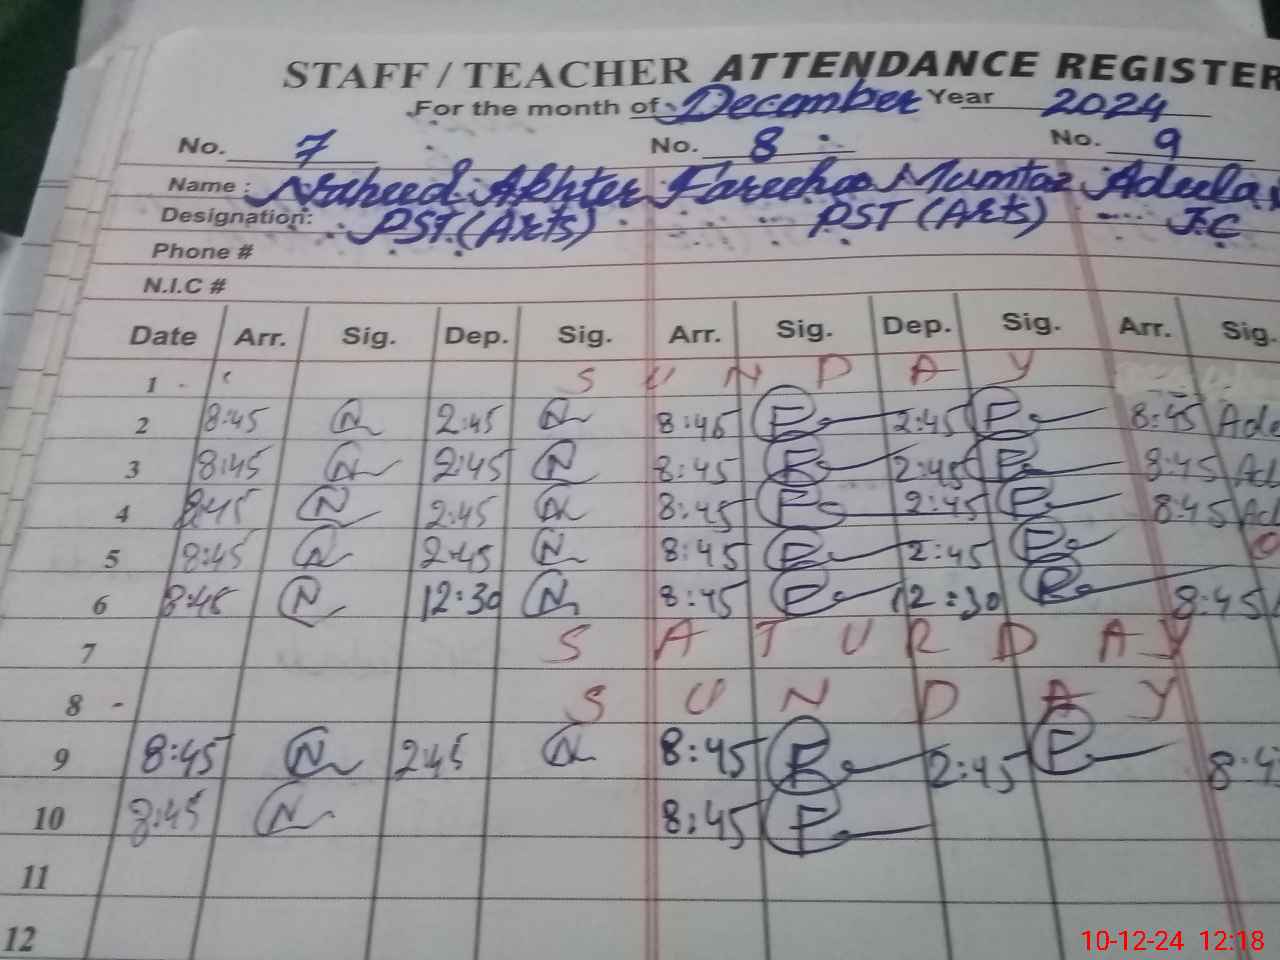 STAFF / TEACHER ATTENDANCE REGISTER
For the month of December Year 2024
No. 7 No. 8 No. 9
Name : Naheed Akhter Fareeha Mumtaz Adeela
Designation: PST (Arts) PST (Arts) J.C
Phone #
N.I.C #
Date Arr. Sig. Dep. Sig. Arr. Sig. Dep. Sig. Arr. Sig.
1 SUNDAY
2 8:45 N 2:45 N 8:45 F 2:45 F 8:45 Ade
3 8:45 N 2:45 N 8:45 F 2:45 F 8:45 Ad
4 8:45 N 2:45 N 8:45 F 2:45 F 8:45 Ad
5 8:45 N 2:45 N 8:45 F 2:45 F
6 8:45 N 12:30 N 8:45 F 12:30 F 8:45
7 SATURDAY
8 SUNDAY
9 8:45 N 2:45 N 8:45 F 2:45 F 8:4
10 8:45 N 8:45 F
11
12
10-12-24 12:18